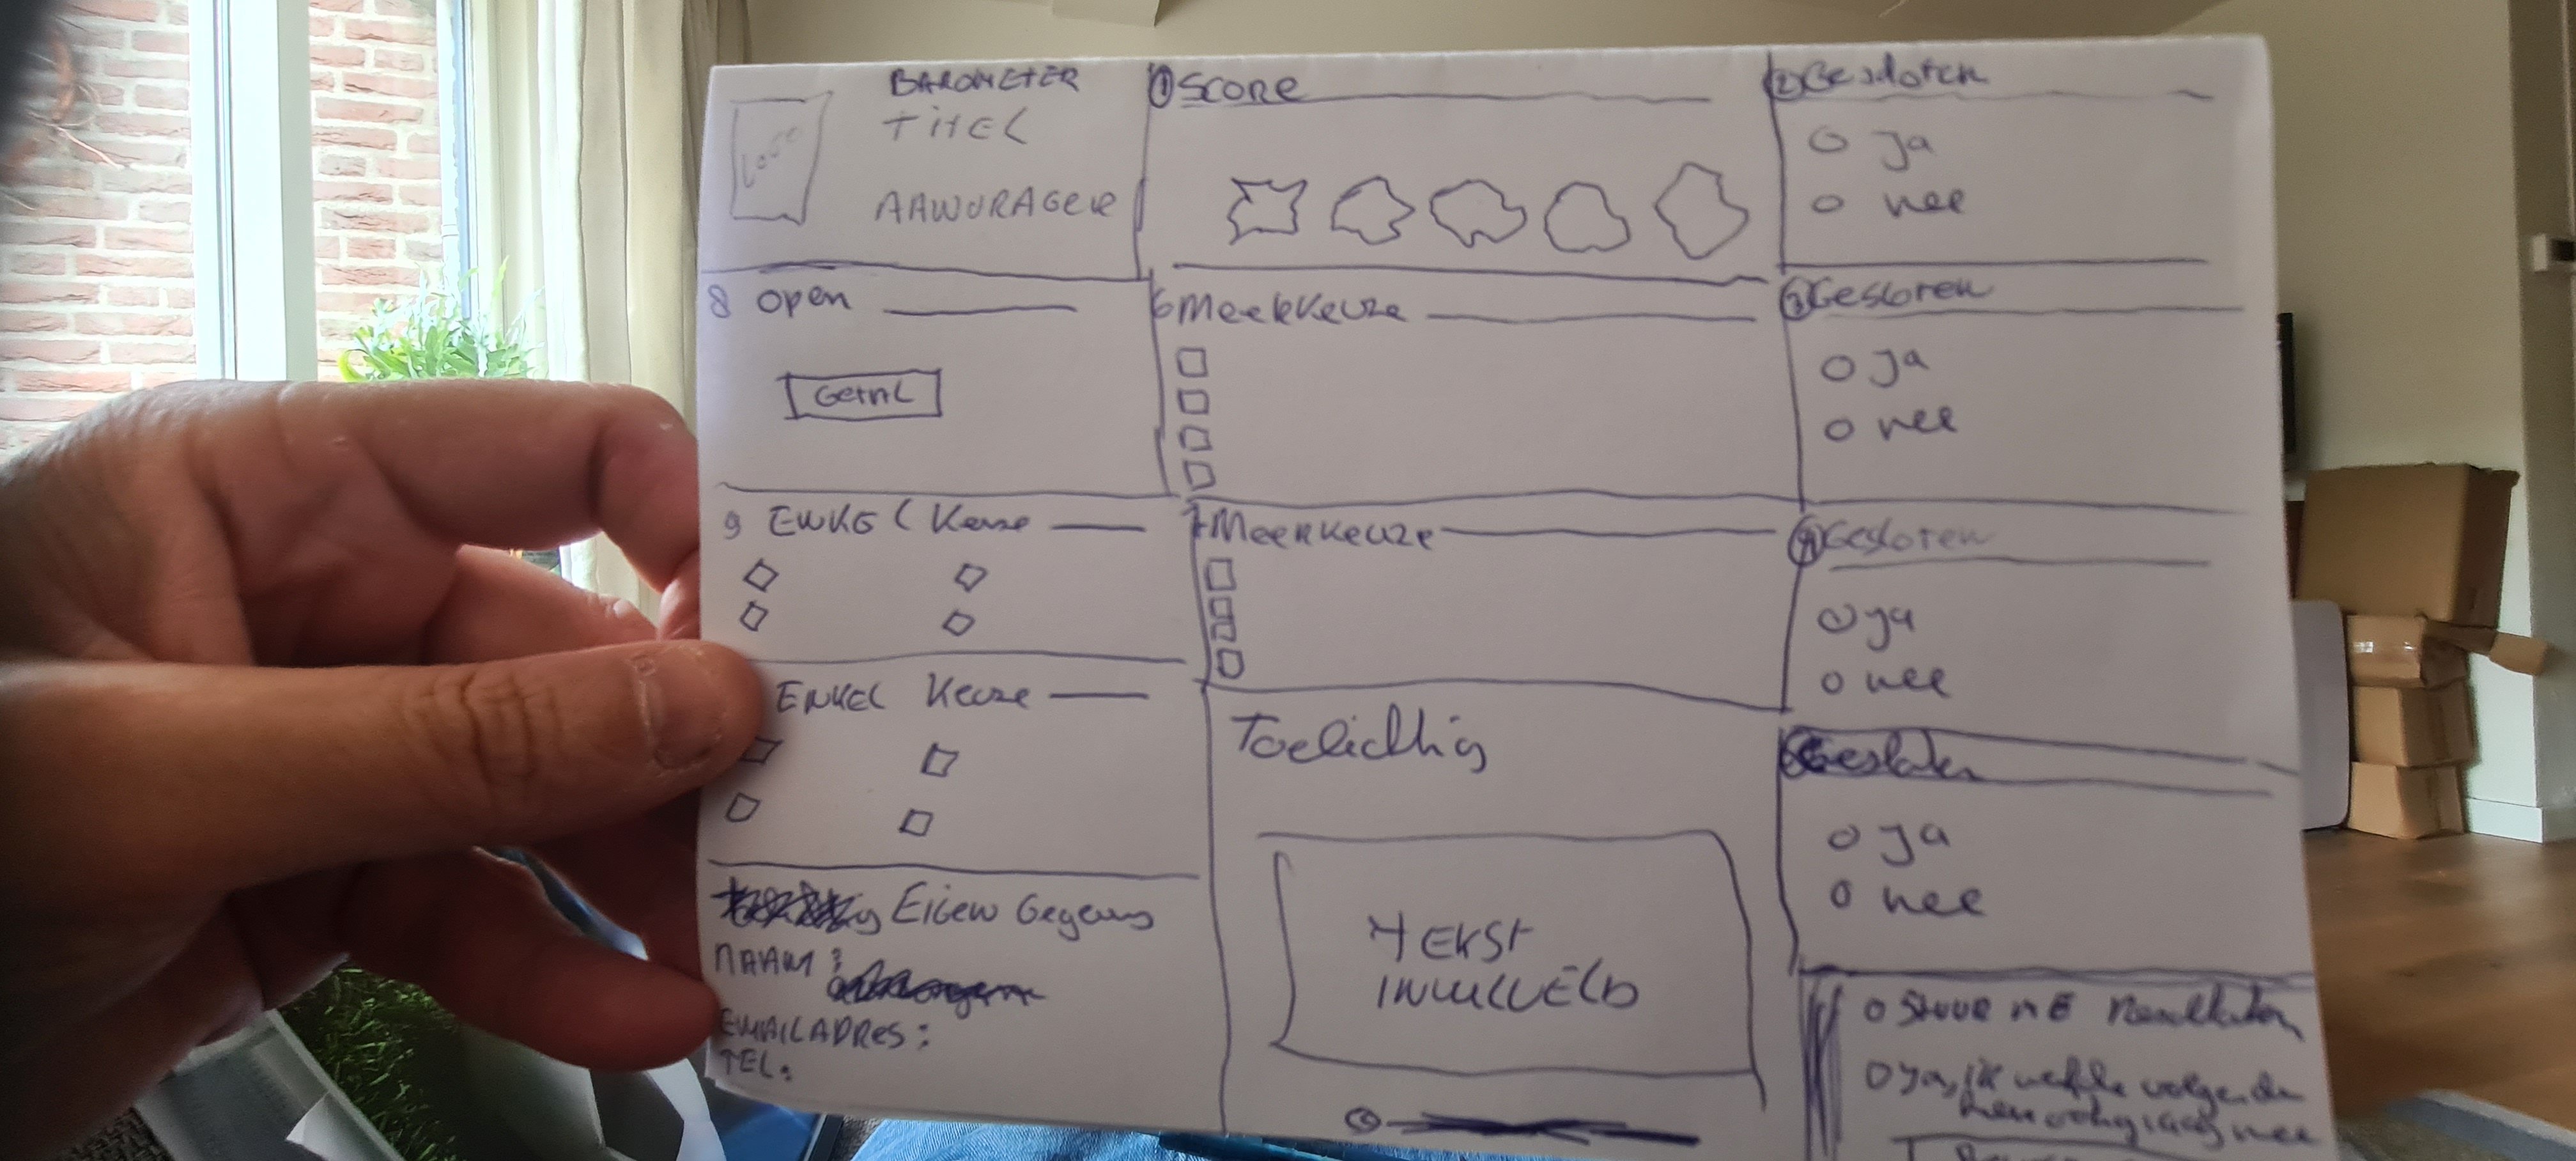 LOGO
BAROMETER
TITEL
AANVRAGER
8 open
GETAL
9 ENKEL Keuze
ENKEL Keuze
Eigen Gegevens
NAAM:
EMAILADRES:
TEL:
1 Score
6 Meerkeuze
7 Meerkeuze
Toelichting
TEKST
INVULVELD
2 Gesloten
ja
nee
3 Gesloten
ja
nee
4 Gesloten
ja
nee
Gesloten
ja
nee
Stuur me Resultaten
ja, ik volgende
nee